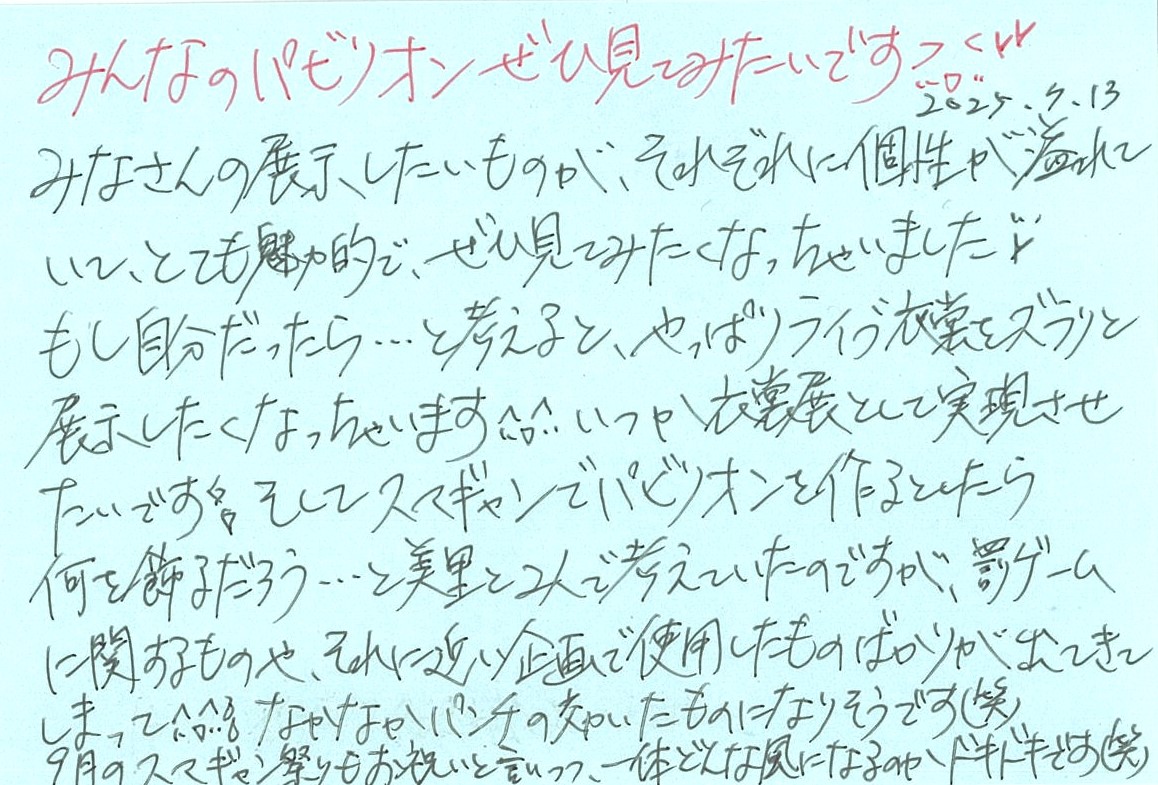 みんなのパビリオンぜひ見てみたいですっ
2025.7.13
みなさんの展示したいものが、それぞれに個性が溢れて
いて、とても魅力的で、ぜひ見てみたくなっちゃいました
もし自分だったら…と考えると、やっぱりライブ衣裳をズラリと
展示したくなっちゃいます^^;いつか衣裳展として実現させ
たいです。そしてスマギャンでパビリオンを作るとしたら
何を飾るだろう…と美里と2人で考えていたのですが、罰ゲーム
に関するものや、それに近い企画で使用したものばかりが出てきて
しまって^^;なかなかパンチの効いたものになりそうです(笑)
9月のスマギャン祭りもお祝いと言いつつ、一体どんな風になるのかドキドキです(笑)